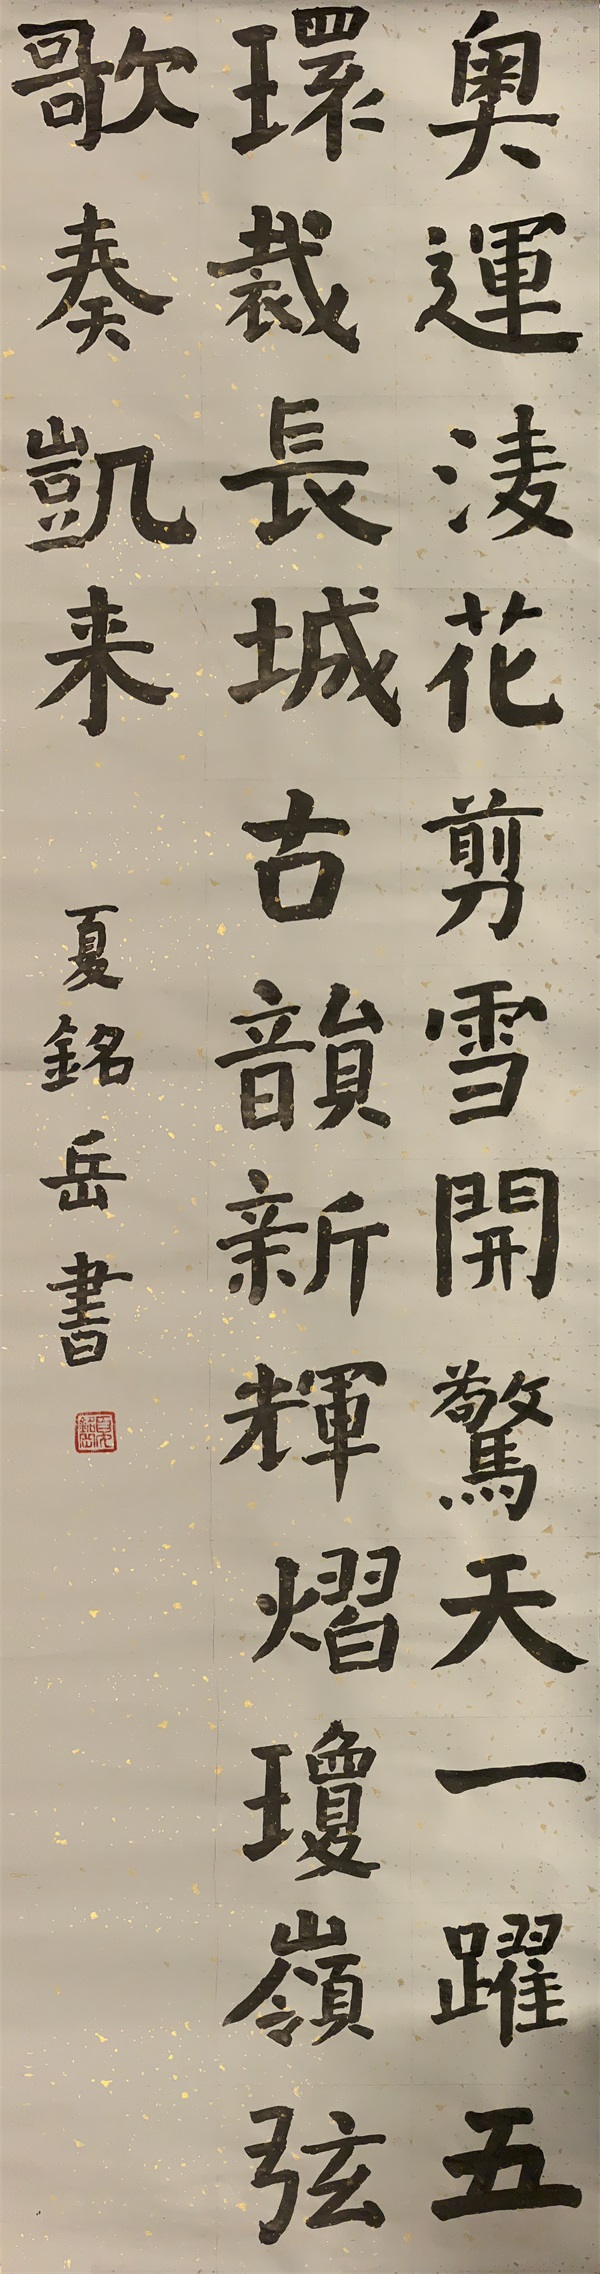 奧運淩花剪雪開驚天一躍五
環裁長城古韻新輝熠瓊嶺弦
歌奏凱来
夏銘岳書